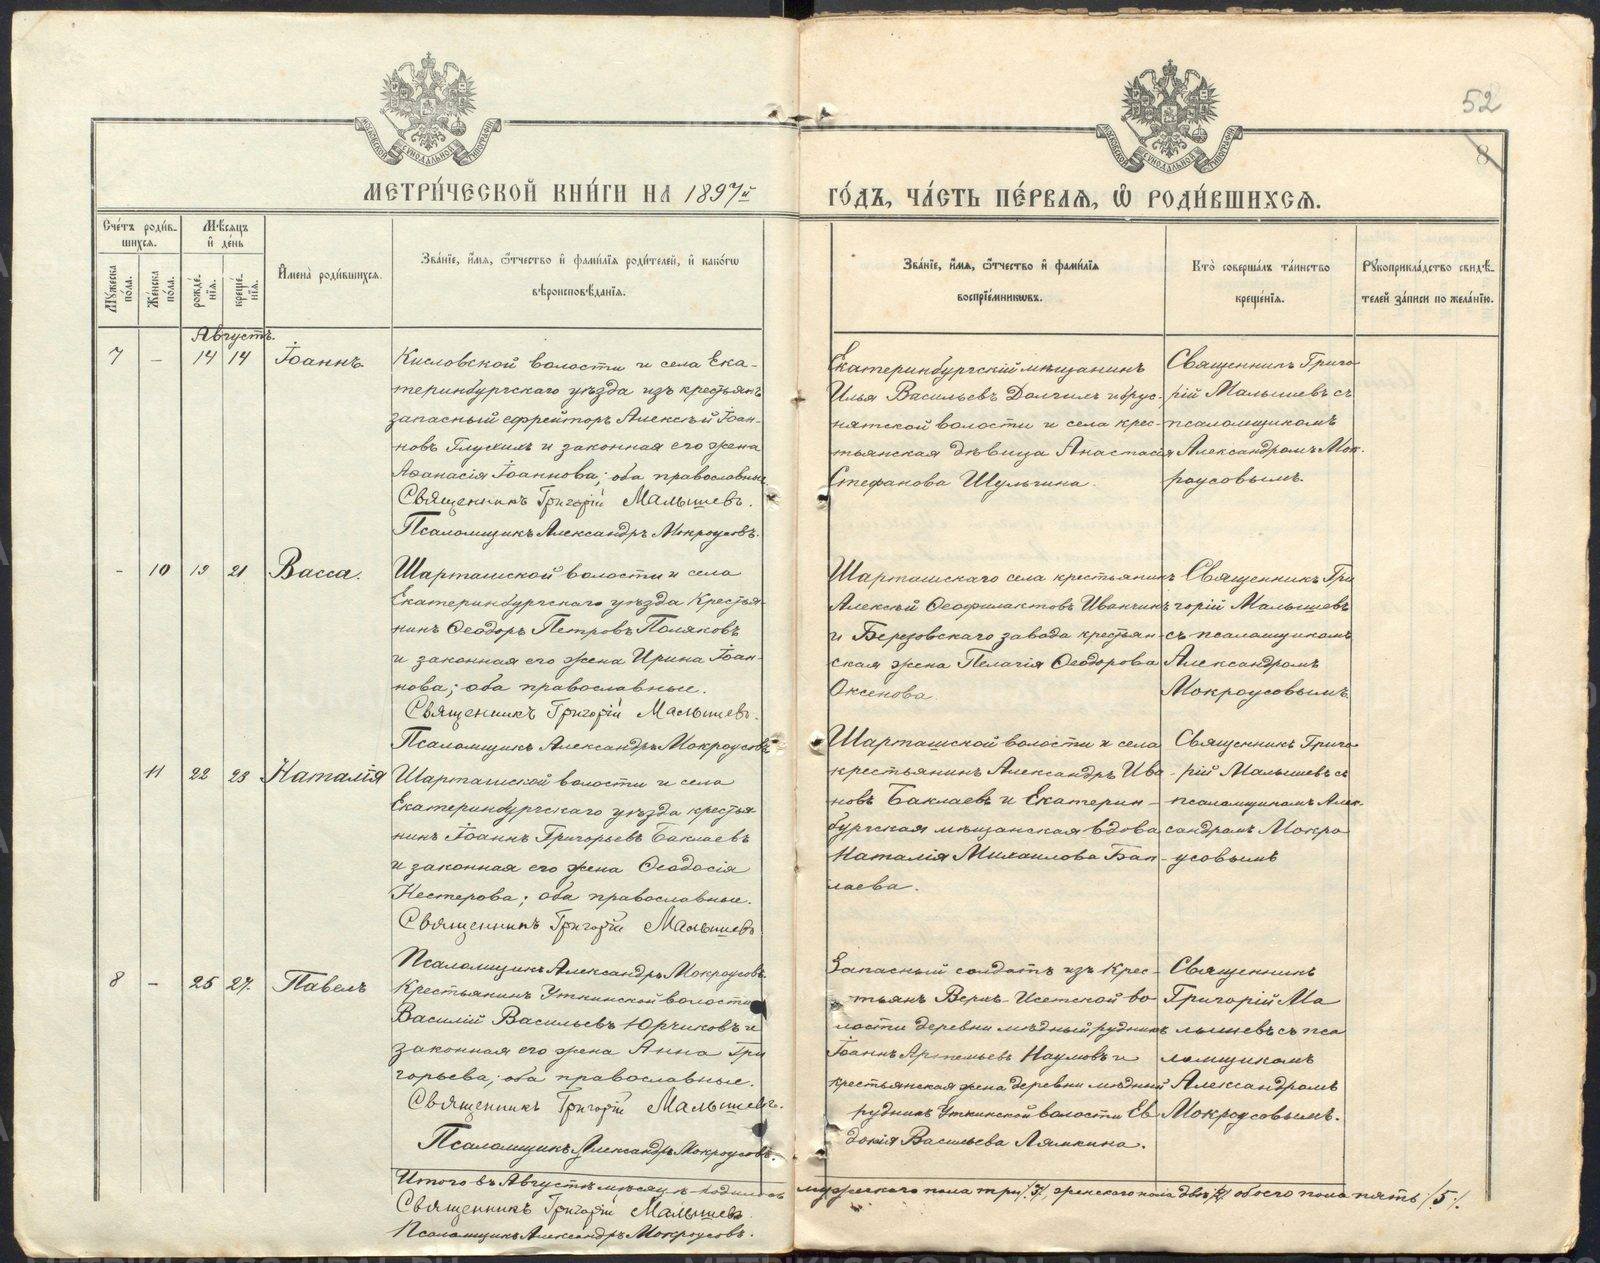 52
8
МОСКОВСКОЙ СѴНОДАЛЬНОЙ ТИПОГРАФІИ
МОСКОВСКОЙ СѴНОДАЛЬНОЙ ТИПОГРАФІИ
МЕТРИ́ЧЕСКОЙ КНИ́ГИ НА 1897й
ГО́ДЪ, ЧА́СТЬ ПЕ́РВАѦ, Ѿ РОДИ́ВШИХСѦ.
Сче́тъ роди́в-
шихсѧ.
Мѣ́сѧцъ
и҆ де́нь
Мꙋ́жеска
по́ла.
Же́нска
по́ла.
рожде́-
нїѧ.
креще́-
нїѧ.
И҆мена̀ роди́вшихсѧ.
Зва́нїе, и҆́мѧ, ѻ҆́тчество и҆ фами́лїѧ роди́телей, и҆ како́гѡ
вѣроисповѣ́данїѧ.
Зва́нїе, и҆́мѧ, ѻ҆́тчество и҆ фами́лїѧ
воспрїе́мникѡвъ.
Кто̀ соверша́лъ та́инство
креще́нїѧ.
Рꙋкоприкла́дство свидѣ́-
телей за́писи по жела́нїю.
Августъ.
7 — 14 14 Іоаннъ
Кисловской волости и села Ека-
теринбургскаго уѣзда изъ крестьянъ
запасный ефрейторъ Алексѣй Іоан-
новъ Глухихъ и законная его жена
Аѳанасія Іоаннова; оба православные
Священникъ Григорій Малышевъ.
Псаломщикъ Александръ Мокроусовъ.
Екатеринбургскій мѣщанинъ
Илья Васильевъ Долгихъ и Брус-
нятской волости и села крес-
тьянская дѣвица Анастасія
Стефанова Шульгина.
Священникъ Григо-
рій Малышевъ съ
псаломщикомъ
Александромъ Мок-
роусовымъ.
- 10 19 21 Васса.
Шарташской волости и села
Екатеринбургскаго уѣзда Крестья-
нинъ Ѳеодоръ Петровъ Поляковъ
и законная его жена Ирина Іоан-
нова; оба православные.
Священникъ Григорій Малышевъ.
Псаломщикъ Александръ Мокроусовъ
Шарташскаго села крестьянинъ
Алексѣй Ѳеофилактовъ Иванчинъ
и Березовскаго завода крестьян-
ская жена Пелагія Ѳеодорова
Оксенова.
Священникъ Гри
горій Малышевъ
съ псаломщикомъ
Александромъ
Мокроусовымъ.
11 22 23 Наталія
Шарташской волости и села
Екатеринбургскаго уѣзда крестья-
нинъ Іоаннъ Григорьевъ Баклаевъ
и законная его жена Ѳеодосія
Нестерова; оба православные.
Священникъ Григорій Малышевъ
Псаломщикъ Александръ Мокроусовъ.
Шарташской волости и села
крестьянинъ Александръ Ива-
новъ Баклаевъ и Екатерин-
бургская мѣщанская вдова
Наталія Михаилова Бак-
лаева.
Священникъ Григо-
рій Малышевъ съ
псаломщикомъ Алек-
сандромъ Мокро
усовымъ
8 — 25 27. Павелъ
Крестьянинъ Уткинской волости
Василій Васильевъ Юрчиковъ и
законная его жена Анна Гри
горьева; оба православные.
Священникъ Григорій Малышевъ.
Псаломщикъ Александръ Мокроусовъ.
Запасный солдатъ изъ крес-
тьянъ Верхъ-Исетской во
лости деревни мѣдный рудникъ
Іоаннъ Артемьевъ Наумовъ и
крестьянская жена деревни мѣдный
рудникъ Уткинской волости Ев
докія Васильева Лямкина.
Священникъ
Григорій Ма
лышевъ съ пса
ломщикомъ
Александромъ
Мокроусовымъ.
Итого въ Августѣ мѣсяцѣ родилось мужескаго пола три /3/, женскаго пола двѣ /2/ обоего пола пять /5/.
Священникъ Григорій Малышевъ
Псаломщикъ Александръ Мокроусовъ.